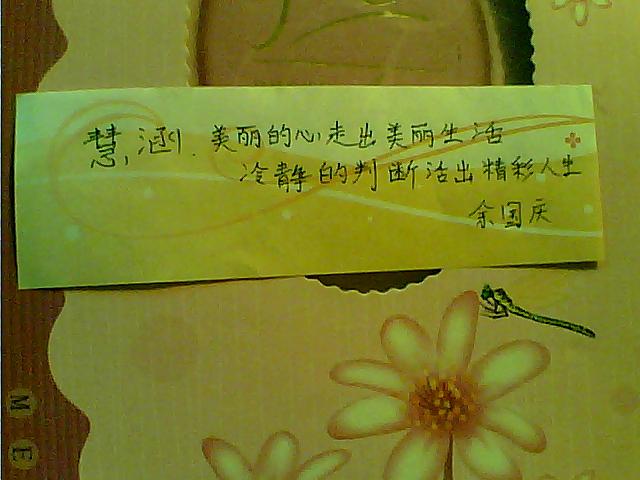 慧,涵. 美丽的心走出美丽生活
冷静的判断活出精彩人生
余国庆
M
E